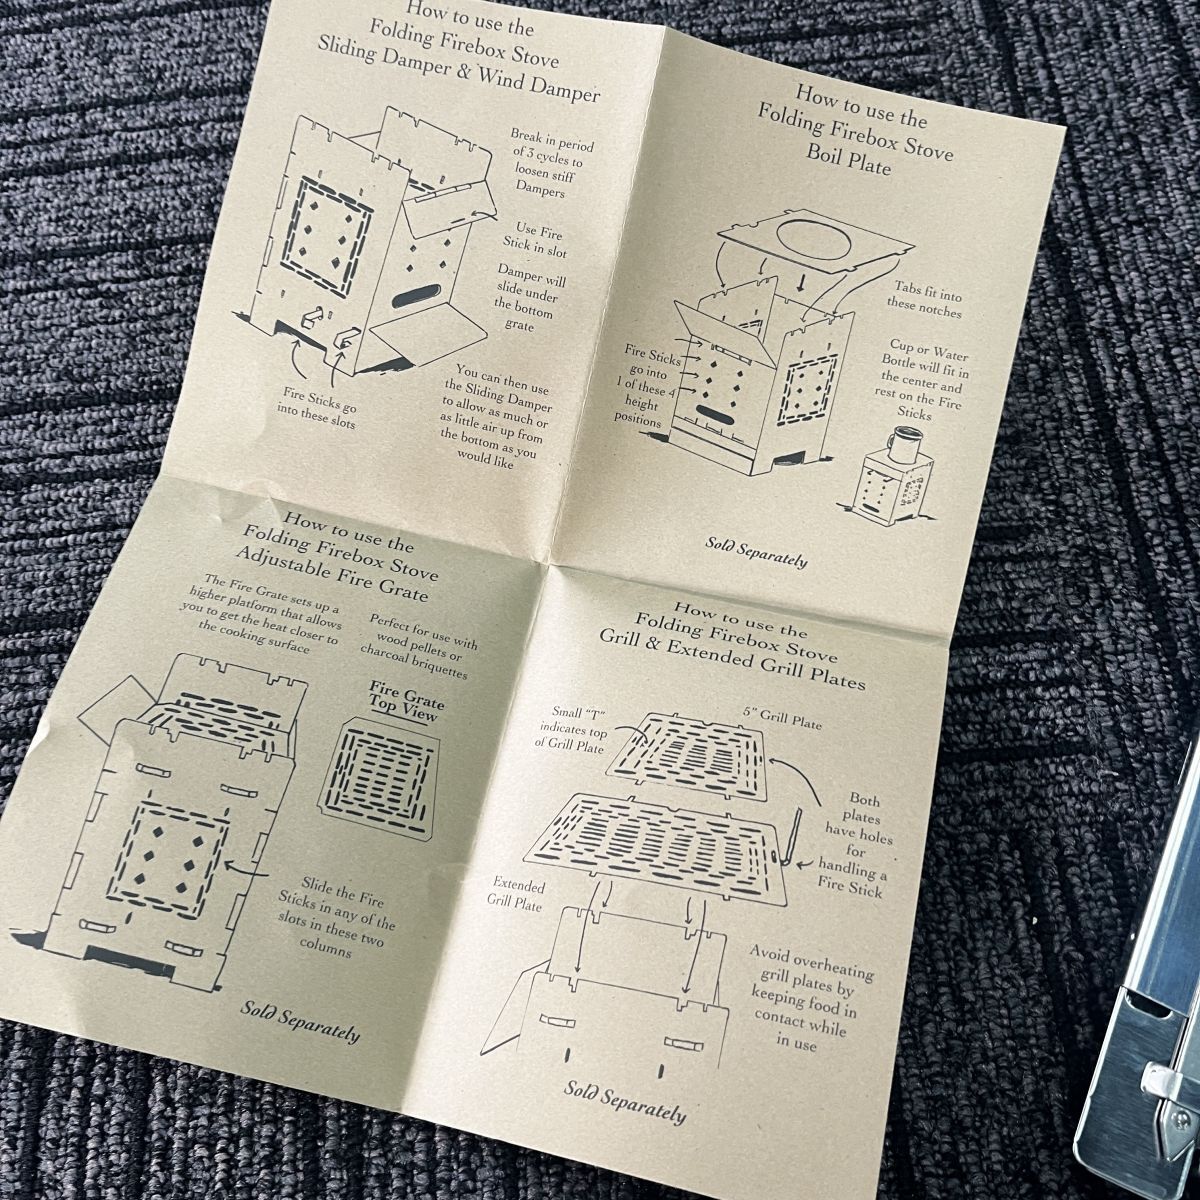 How to use the
Folding Firebox Stove
Sliding Damper & Wind Damper
Break in period
of 3 cycles to
loosen stiff
Dampers
Use Fire
Stick in slot
Damper will
slide under
the bottom
grate
Fire Sticks go
into these slots
You can then use
the Sliding Damper
to allow as much or
as little air up from
the bottom as you
would like
How to use the
Folding Firebox Stove
Boil Plate
Tabs fit into
these notches
Fire Sticks
go into
1 of these 4
height
positions
Cup or Water
Bottle will fit in
the center and
rest on the Fire
Sticks
Sold Separately
How to use the
Folding Firebox Stove
Adjustable Fire Grate
The Fire Grate sets up a
higher platform that allows
you to get the heat closer to
the cooking surface
Perfect for use with
wood pellets or
charcoal briquettes
Fire Grate
Top View
Slide the Fire
Sticks in any of the
slots in these two
columns
Sold Separately
How to use the
Folding Firebox Stove
Grill & Extended Grill Plates
Small "T"
indicates top
of Grill Plate
5" Grill Plate
Both
plates
have holes
for
handling a
Fire Stick
Extended
Grill Plate
Avoid overheating
grill plates by
keeping food in
contact while
in use
Sold Separately